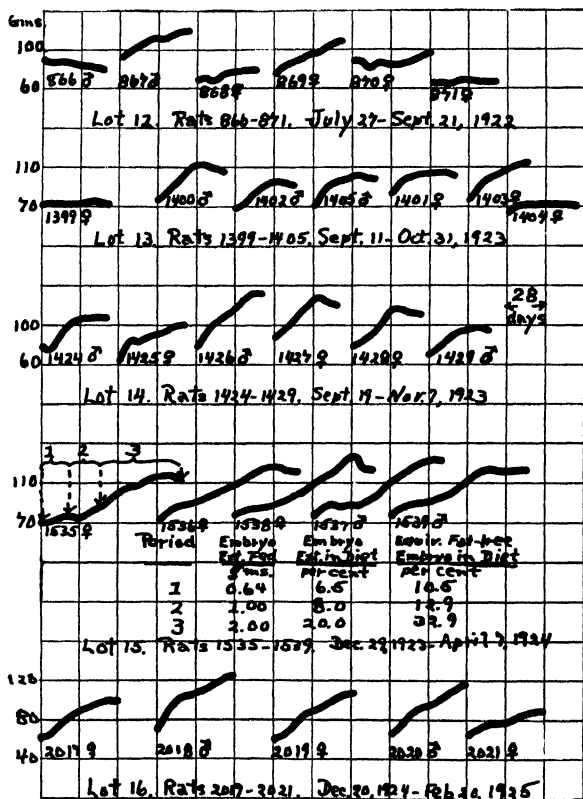 Gms
100
60
866♂ 867♂ 868♀ 869♀ 870♀ 871♀
Lot 12. Rats 866-871. July 27-Sept. 21, 1922
110
70
1399♀ 1400♂ 1402♂ 1405♂ 1401♀ 1403♀ 1404♀
Lot 13. Rats 1399-1405. Sept. 11-Oct. 31, 1923
28
days
100
60
1424♂ 1425♀ 1426♂ 1427♀ 1428♀ 1429♂
Lot 14. Rats 1424-1429. Sept 19-Nov. 7, 1923
1 2 3
110
70
1535♀ 1536♀ 1538♀ 1537♂ 1539♂
Period Embryo Embryo Equiv. Fat-free
Ext. Fed Ext. in Diet Embryo in Diet
gms. per cent per cent
1 0.64 6.5 10.5
2 1.00 8.0 12.9
3 2.00 20.0 32.9
Lot 15. Rats 1535-1539. Dec. 29, 1923-April 7, 1924
120
80
40
2017♀ 2018♂ 2019♀ 2020♂ 2021♀
Lot 16. Rats 2017-2021. Dec. 20, 1924-Feb 20, 1925